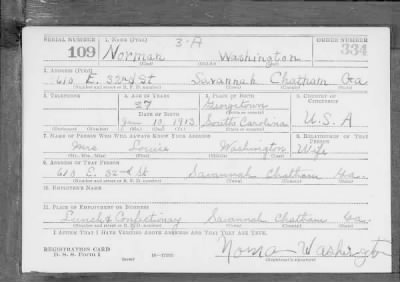 SERIAL NUMBER 1. NAME (Print) ORDER NUMBER
3-A
109 Norman Washington 334
(First) (Middle) (Last)
2. ADDRESS (Print)
610 E. 32nd St Savannah Chatham Ga
(Number and street or R. F. D. number) (Town) (County) (State)
3. TELEPHONE 4. AGE IN YEARS 5. PLACE OF BIRTH 6. COUNTRY OF CITIZENSHIP
27 Georgetown
DATE OF BIRTH (Town or county)
10, 1913 South Carolina U.S.A
(Exchange) (No.) (Mo.) (Day) (Yr.) (State or country)
7. NAME OF PERSON WHO WILL ALWAYS KNOW YOUR ADDRESS 8. RELATIONSHIP OF THAT PERSON
Mrs Louise Washington Wife
(Mr., Mrs., Miss) (First) (Middle) (Last)
9. ADDRESS OF THAT PERSON
610 E. 32nd St Savannah Chatham Ga.
(Number and street or R. F. D. number) (Town) (County) (State)
10. EMPLOYER'S NAME
11. PLACE OF EMPLOYMENT OR BUSINESS
Lunch & Confectinay Savannah Chatham Ga.
(Number and street or R. F. D. number) (Town) (County) (State)
I AFFIRM THAT I HAVE VERIFIED ABOVE ANSWERS AND THAT THEY ARE TRUE.
REGISTRATION CARD
D. S. S. Form 1 (over) 16—17105 Norman Washington
(Registrant's signature)